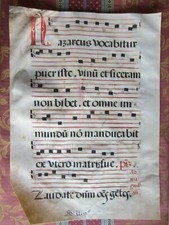 Nazareus vocabitur
puer iste, vinũ et siceram
non bibet, et omne im
mundũ nõ manducabit
ex utero matris suę. ps.
Laudate dñm oẽs gẽtes.